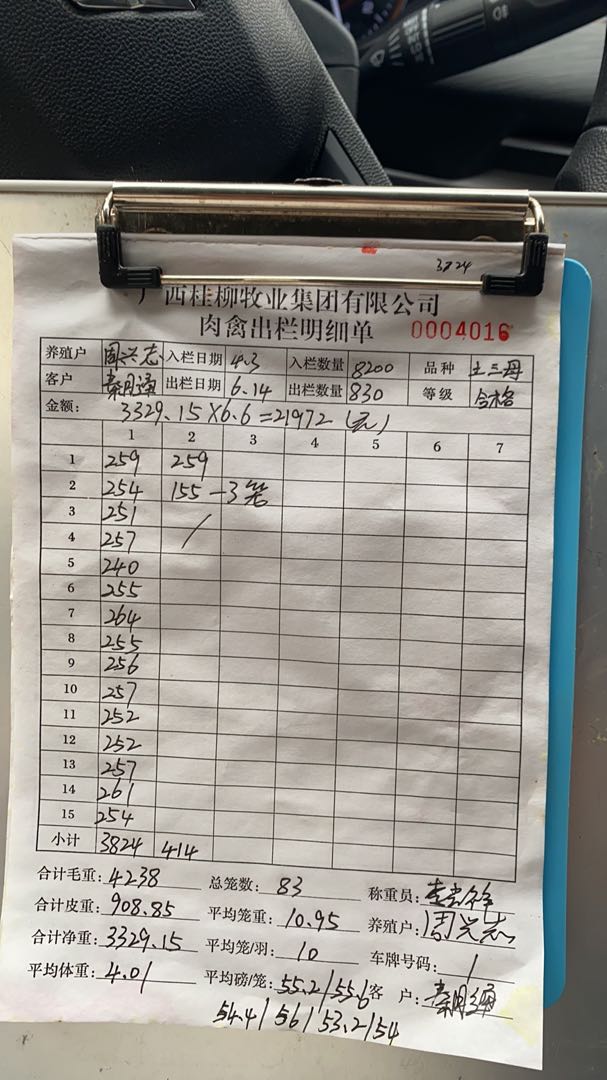 3824
广西桂柳牧业集团有限公司
肉禽出栏明细单 0004016
养殖户 周兴志 入栏日期 4.3 入栏数量 8200 品种 土三母
客户 秦明通 出栏日期 6.14 出栏数量 830 等级 合格
金额: 3329.15×6.6=21972(元)
1 2 3 4 5 6 7
1 259 259
2 254 155-3笼
3 251 /
4 257
5 240
6 255
7 264
8 255
9 256
10 257
11 252
12 252
13 257
14 261
15 254
小计 3824 414
合计毛重: 4238 总笼数: 83 称重员:
合计皮重: 908.85 平均笼重: 10.95 养殖户: 周兴志
合计净重: 3329.15 平均笼/羽: 10 车牌号码: /
平均体重: 4.01 平均磅/笼: 55.2/55.6 客 户: 秦明通
54.4/56/53.2/54